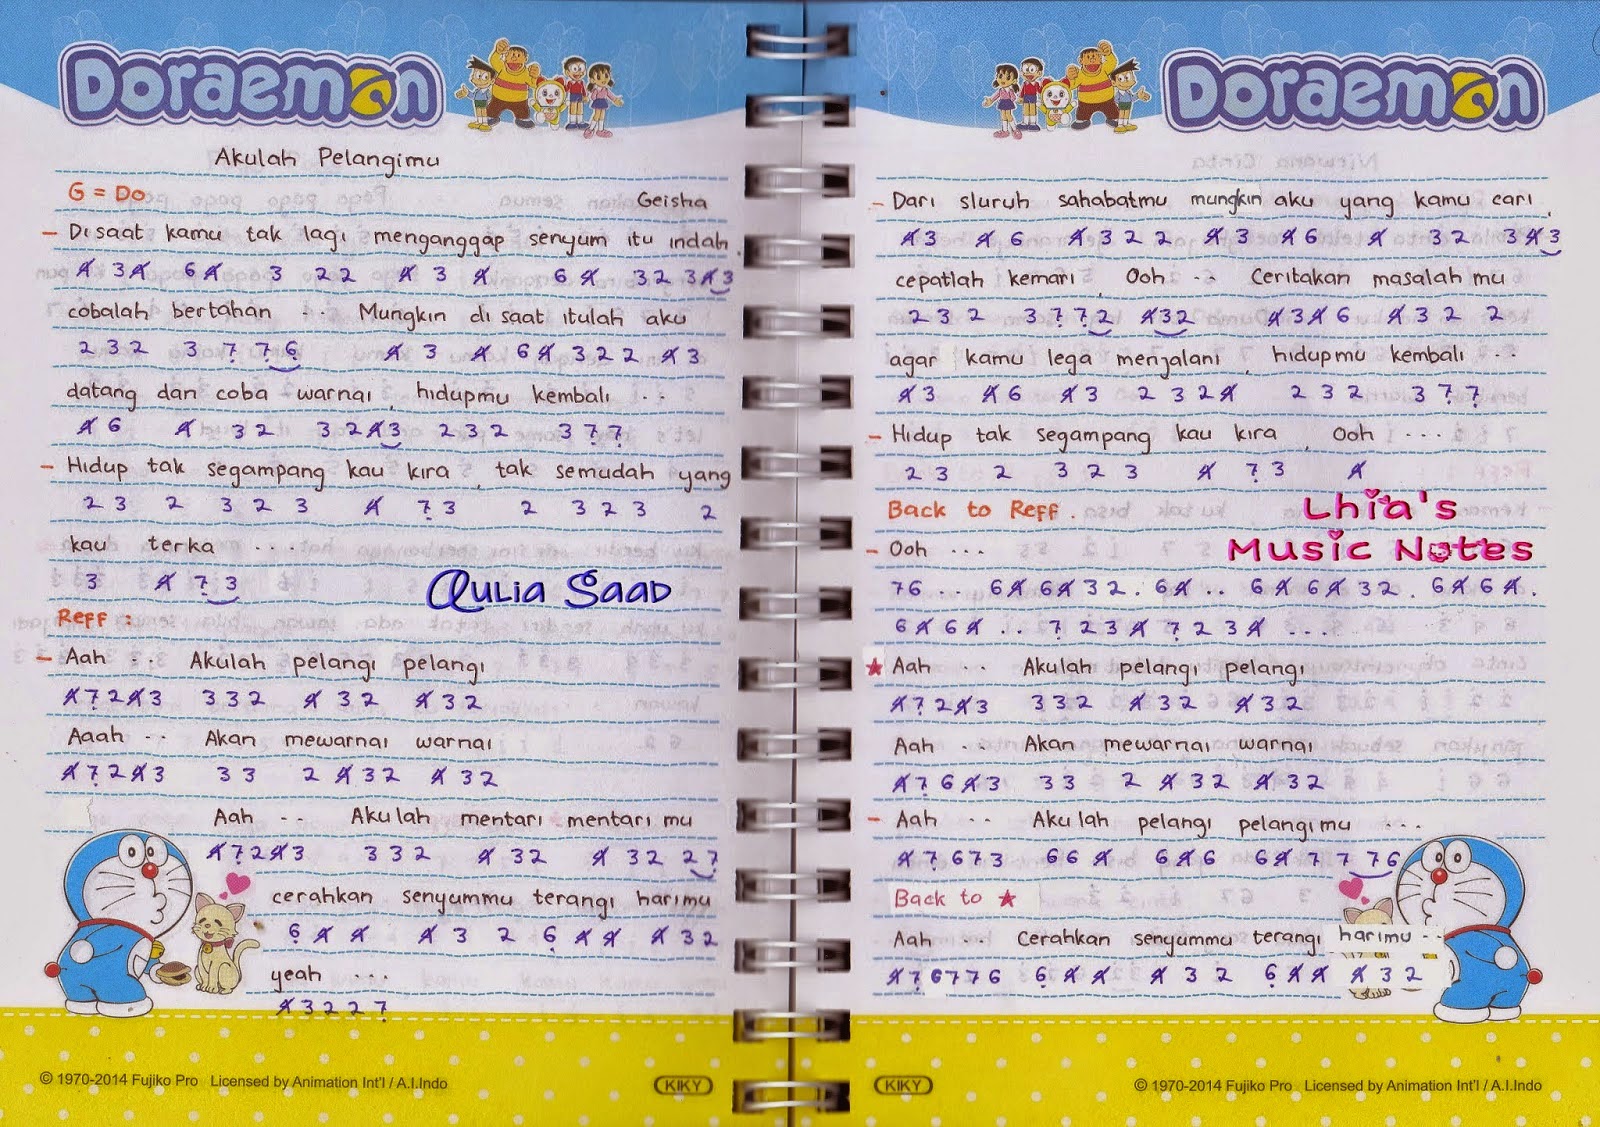 Doraemon
Akulah Pelangimu
G = Do Geisha
- Disaat kamu tak lagi menganggap senyum itu indah
4̸ 3 4̸ 6 4̸ 3 2 2 4̸ 3 4̸ 6 4̸ 3 2 3 4̸ 3
cobalah bertahan .. Mungkin di saat itulah aku
2 3 2 3 7̣ 7̣ 6̣ 4̸ 3 4̸ 6 4̸ 3 2 2 4̸ 3
datang dan coba warnai, hidupmu kembali ..
4̸ 6 4̸ 3 2 3 2 4̸ 3 2 3 2 3 7̣ 7̣
- Hidup tak segampang kau kira, tak semudah yang
2 3 2 3 2 3 4̸ 7̣ 3 2 3 2 3 2
kau terka ....
3 4̸ 7̣ 3
Reff :
- Aah .. Akulah pelangi pelangi
4̸ 7̣ 2 4̸ 3 3 3 2 4̸ 3 2 4̸ 3 2
Aaah .. Akan mewarnai warnai
4̸ 7̣ 2 4̸ 3 3 3 2 4̸ 3 2 4̸ 3 2
Aah .. Akulah mentari mentari mu
4̸ 7̣ 2 4̸ 3 3 3 2 4̸ 3 2 4̸ 3 2 2 7̣
cerahkan senyummu terangi harimu
6̣ 4̸ 4̸ 4̸ 3 2 6̣ 4̸ 4̸ 4̸ 3 2
yeah ...
4̸ 3 2 2 7̣
Qulia Saad
© 1970-2014 Fujiko Pro Licensed by Animation Int'l / A.I.Indo
KIKY
Doraemon
- Dari sluruh sahabatmu mungkin aku yang kamu cari,
4̸ 3 4̸ 6 4̸ 3 2 2 4̸ 3 4̸ 6 4̸ 3 2 3 4̸ 3
cepatlah kemari, Ooh .. Ceritakan masalah mu
2 3 2 3 7̣ 7̣ 2 4̸ 3 2 4̸ 3 4̸ 6 4̸ 3 2 2
agar kamu lega menjalani, hidupmu kembali ..
4̸ 3 4̸ 6 4̸ 3 2 3 2 4̸ 2 3 2 3 7̣ 7̣
- Hidup tak segampang kau kira, Ooh ....
2 3 2 3 2 3 4̸ 7̣ 3 4̸
Back to Reff.
Lhia's
Music Notes
- Ooh ...
7 6 .. 6 4̸ 6 4̸ 3 2 . 6 4̸ .. 6 4̸ 6 4̸ 3 2 . 6 4̸ 6 4̸ .
6 4̸ 6 4̸ .. 7̣ 2 3 4̸ 7̣ 2 3 4̸ ...
★ Aah .. Akulah pelangi pelangi
4̸ 7̣ 2 4̸ 3 3 3 2 4̸ 3 2 4̸ 3 2
Aah .. Akan mewarnai warnai
4̸ 7̣ 6 4̸ 3 3 3 2 4̸ 3 2 4̸ 3 2
- Aah .. Akulah pelangi pelangimu ...
4̸ 7̣ 6 7 3 6 6 4̸ 6 4̸ 6 6 4̸ 7 7 7 6
Back to ★
Aah .. Cerahkan senyummu terangi harimu ..
4̸ 7̣ 6 7 7 6 6̣ 4̸ 4̸ 4̸ 3 2 6̣ 4̸ 4̸ 4̸ 3 2
KIKY
© 1970-2014 Fujiko Pro Licensed by Animation Int'l / A.I.Indo